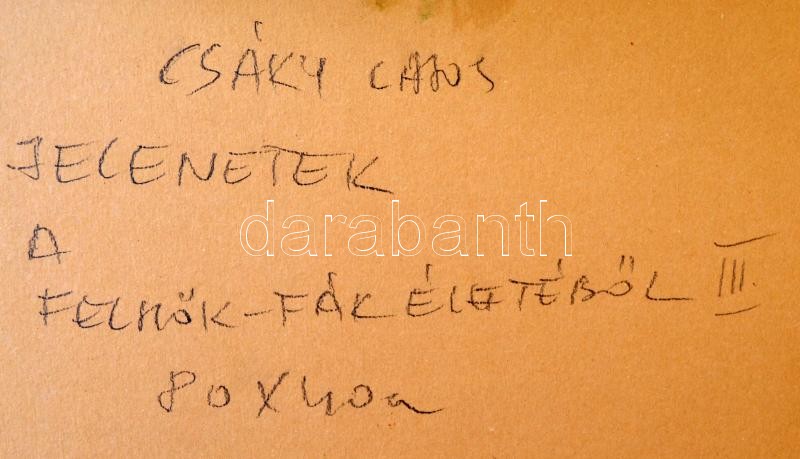 CSÁKY LAJOS
JELENETEK
A
darabanth
FELHŐK-FÁK ÉLETÉBŐL III.
80X40